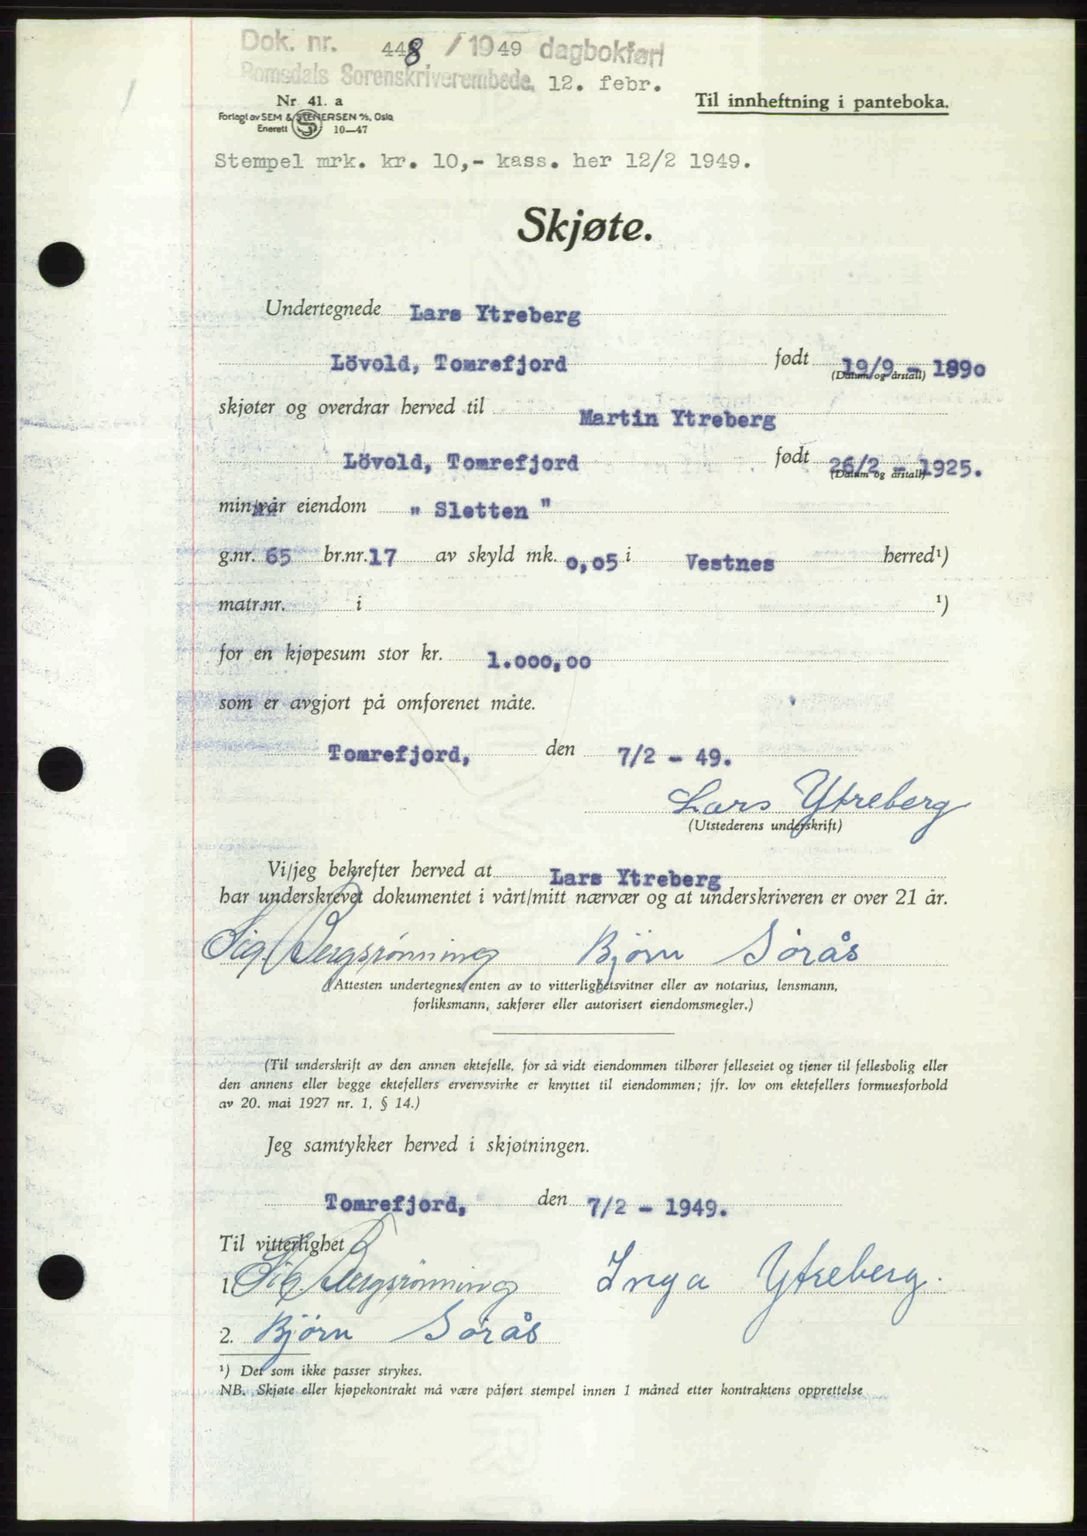 Dok. nr. 448 / 1949 dagbokført
Romsdals Sorenskriverembede. 12. febr.
Nr 41. a
Til innheftning i panteboka.
Forlagt av SEM & STENERSEN A/S, Oslo
Enerett 10—47
Stempel mrk. kr. 10,- kass. her 12/2 1949.
Skjøte.
Undertegnede Lars Ytreberg
Lövold, Tomrefjord født 19/9 - 1890
(Datum og årstall)
skjøter og overdrar herved til Martin Ytreberg
Lövold, Tomrefjord født 26/2 - 1925.
(Datum og årstall)
min/vår eiendom " Sletten "
g.nr. 65 br.nr. 17 av skyld mk. 0,05 i Vestnes herred¹)
matr.nr. i ¹)
for en kjøpesum stor kr. 1.000,00
som er avgjort på omforenet måte.
Tomrefjord, den 7/2 - 49.
Lars Ytreberg
(Utstederens underskrift)
Vi/jeg bekrefter herved at Lars Ytreberg
har underskrevet dokumentet i vårt/mitt nærvær og at underskriveren er over 21 år.
Sig. Bergsrønning Bjørn Sørås
(Attesten undertegnes enten av to vitterlighetsvitner eller av notarius, lensmann,
forliksmann, sakfører eller autorisert eiendomsmegler.)
(Til underskrift av den annen ektefelle, for så vidt eiendommen tilhører felleseiet og tjener til fellesbolig eller
den annens eller begge ektefellers ervervsvirke er knyttet til eiendommen; jfr. lov om ektefellers formuesforhold
av 20. mai 1927 nr. 1, § 14.)
Jeg samtykker herved i skjøtningen.
Tomrefjord, den 7/2 - 1949.
Til vitterlighet
1. Sig. Bergsrønning Inga Ytreberg.
2. Bjørn Sørås
¹) Det som ikke passer strykes.
NB. Skjøte eller kjøpekontrakt må være påført stempel innen 1 måned etter kontraktens opprettelse